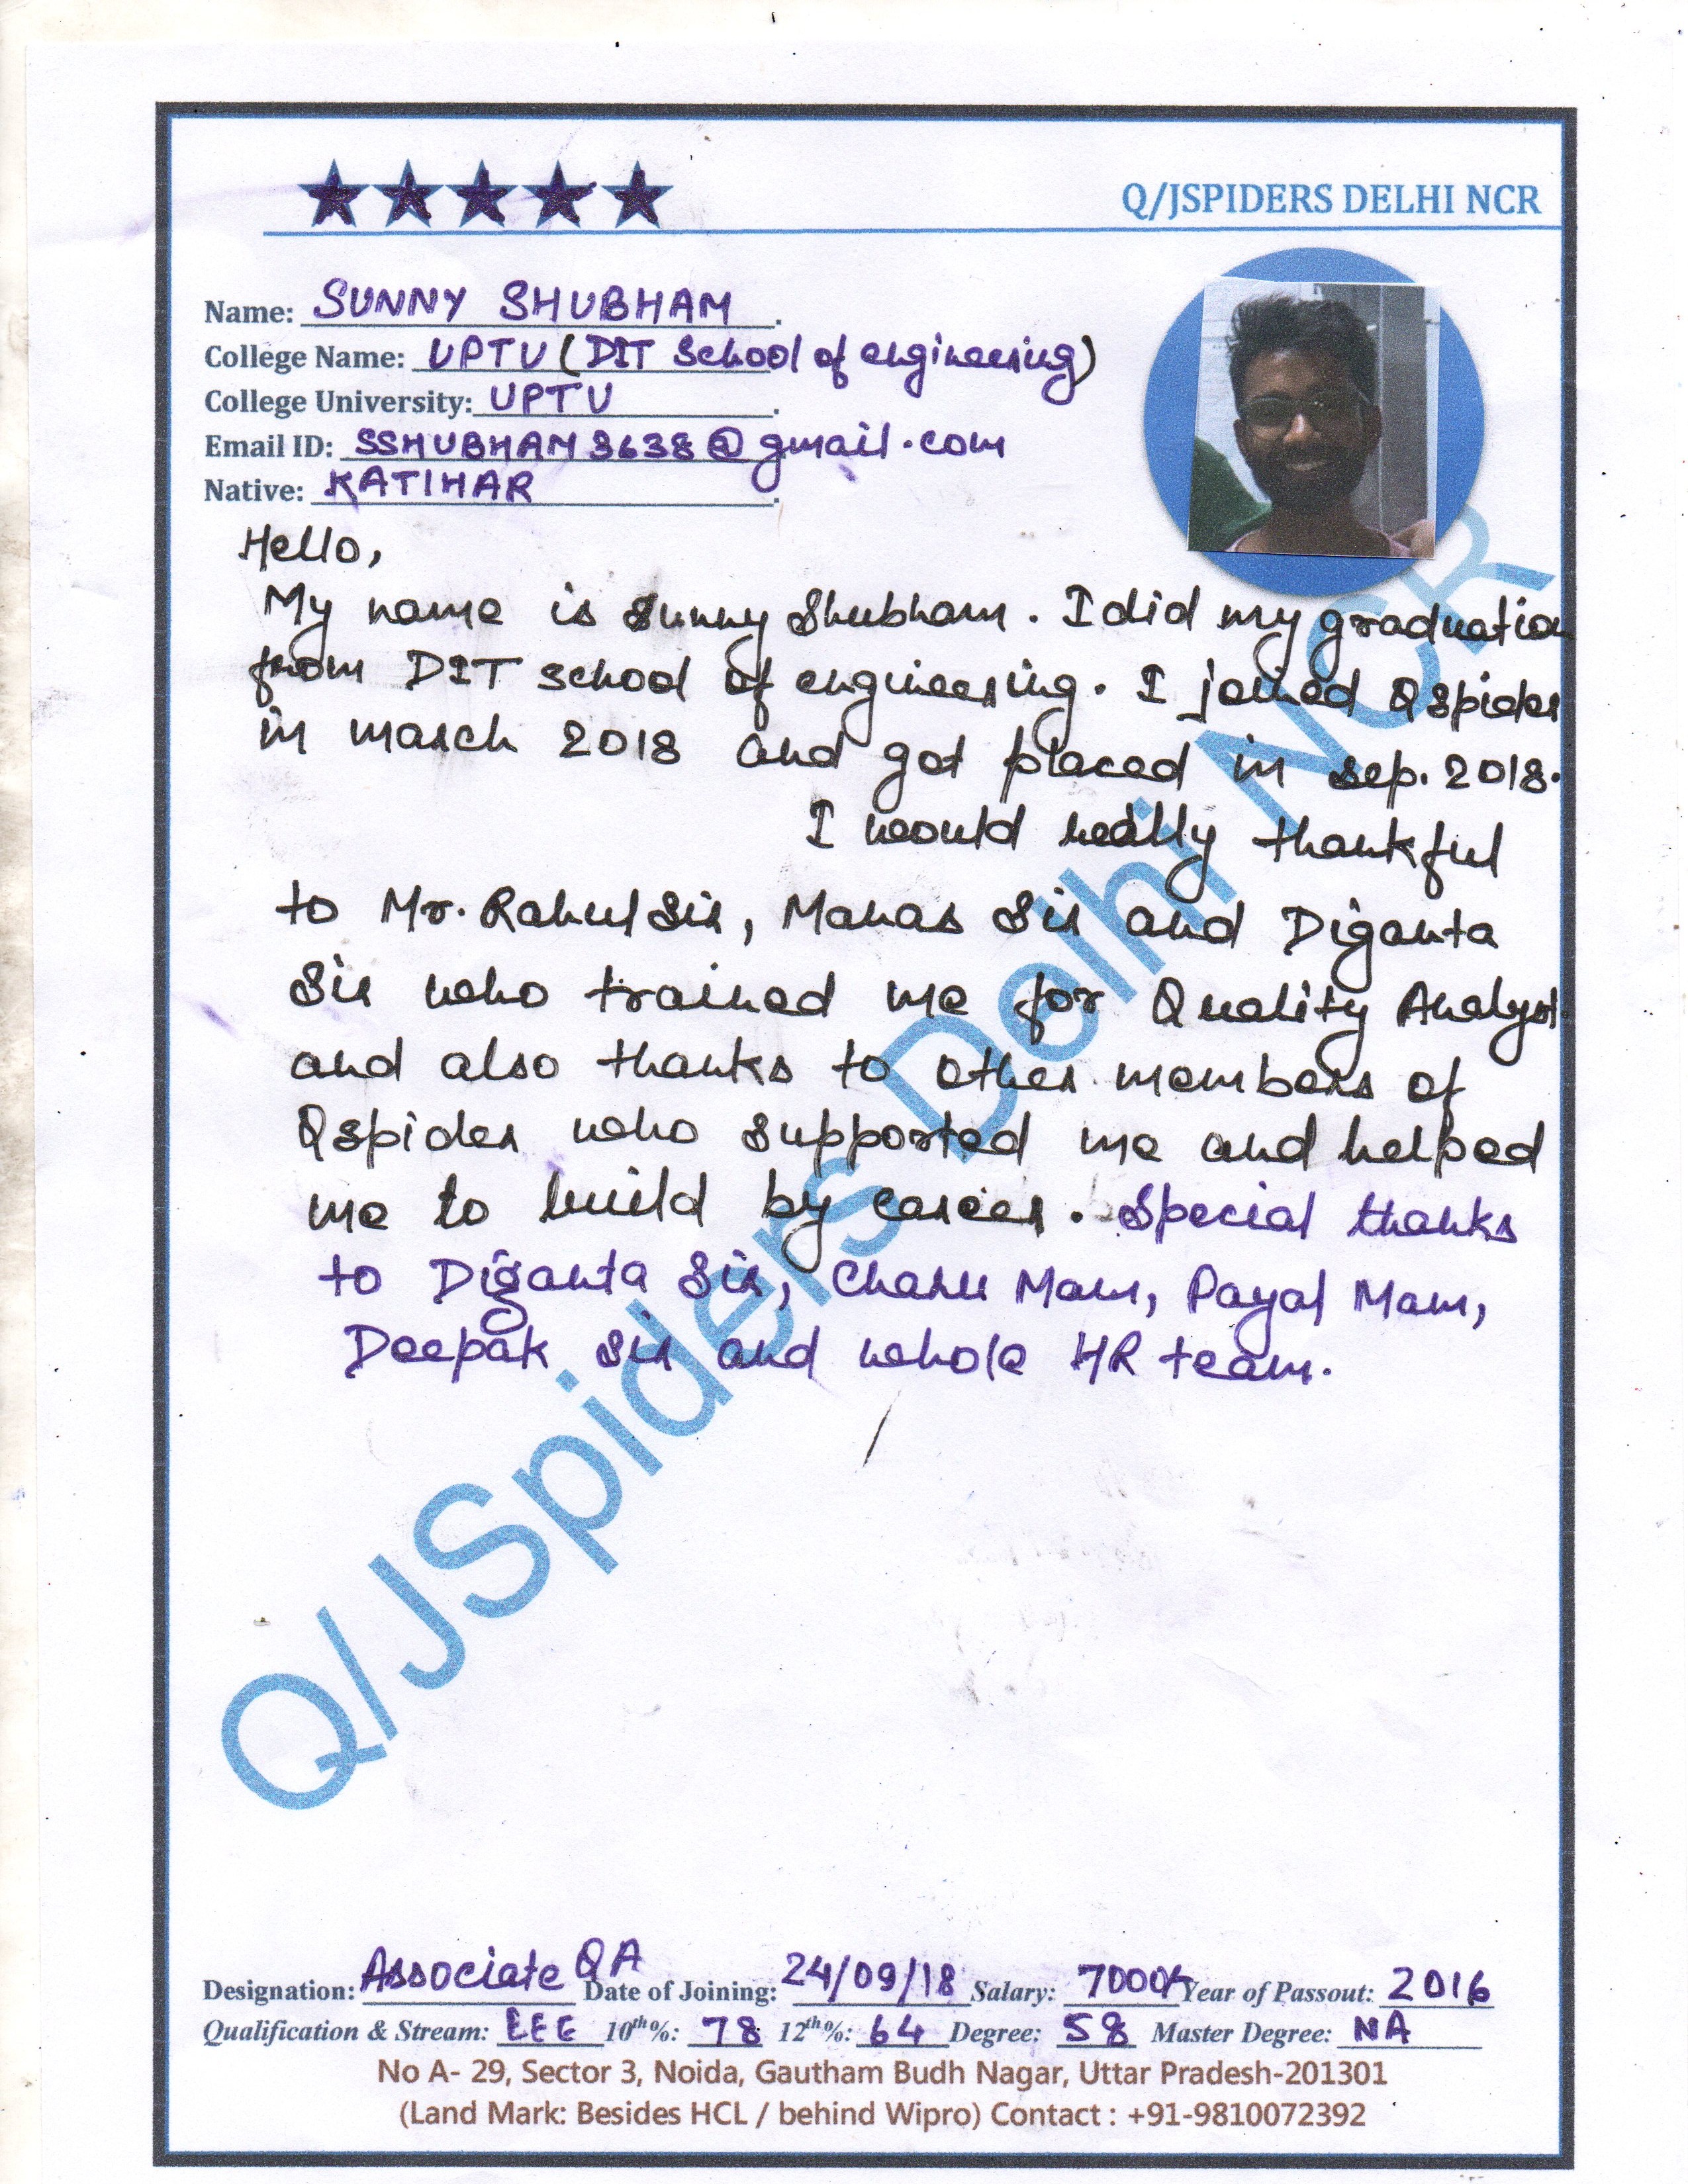 Q/JSPIDERS DELHI NCR
Name: SUNNY SHUBHAM
College Name: UPTU (DIT School of engineering)
College University: UPTU
Email ID: SSHUBHAM3638@gmail.com
Native: KATIHAR
Hello,
My name is Sunny Shubham. I did my graduation
from DIT school of engineering. I joined Qspider
in march 2018 and got placed in sep. 2018.
I would really thankful
to Mr. Rahul Sir, Manas Sir and Diganta
Sir who trained me for Quality Analyst
and also thanks to other members of
Qspider who supported me and helped
me to build by career. Special thanks
to Diganta Sir, Charu Mam, Payal Mam,
Deepak Sir and whole HR team.
Q/JSpiders Delhi NCR
Designation: Associate QA Date of Joining: 24/09/18 Salary: 7000 Year of Passout: 2016
Qualification & Stream: EEE 10th%: 78 12th%: 64 Degree: 58 Master Degree: NA
No A- 29, Sector 3, Noida, Gautham Budh Nagar, Uttar Pradesh-201301
(Land Mark: Besides HCL / behind Wipro) Contact : +91-9810072392